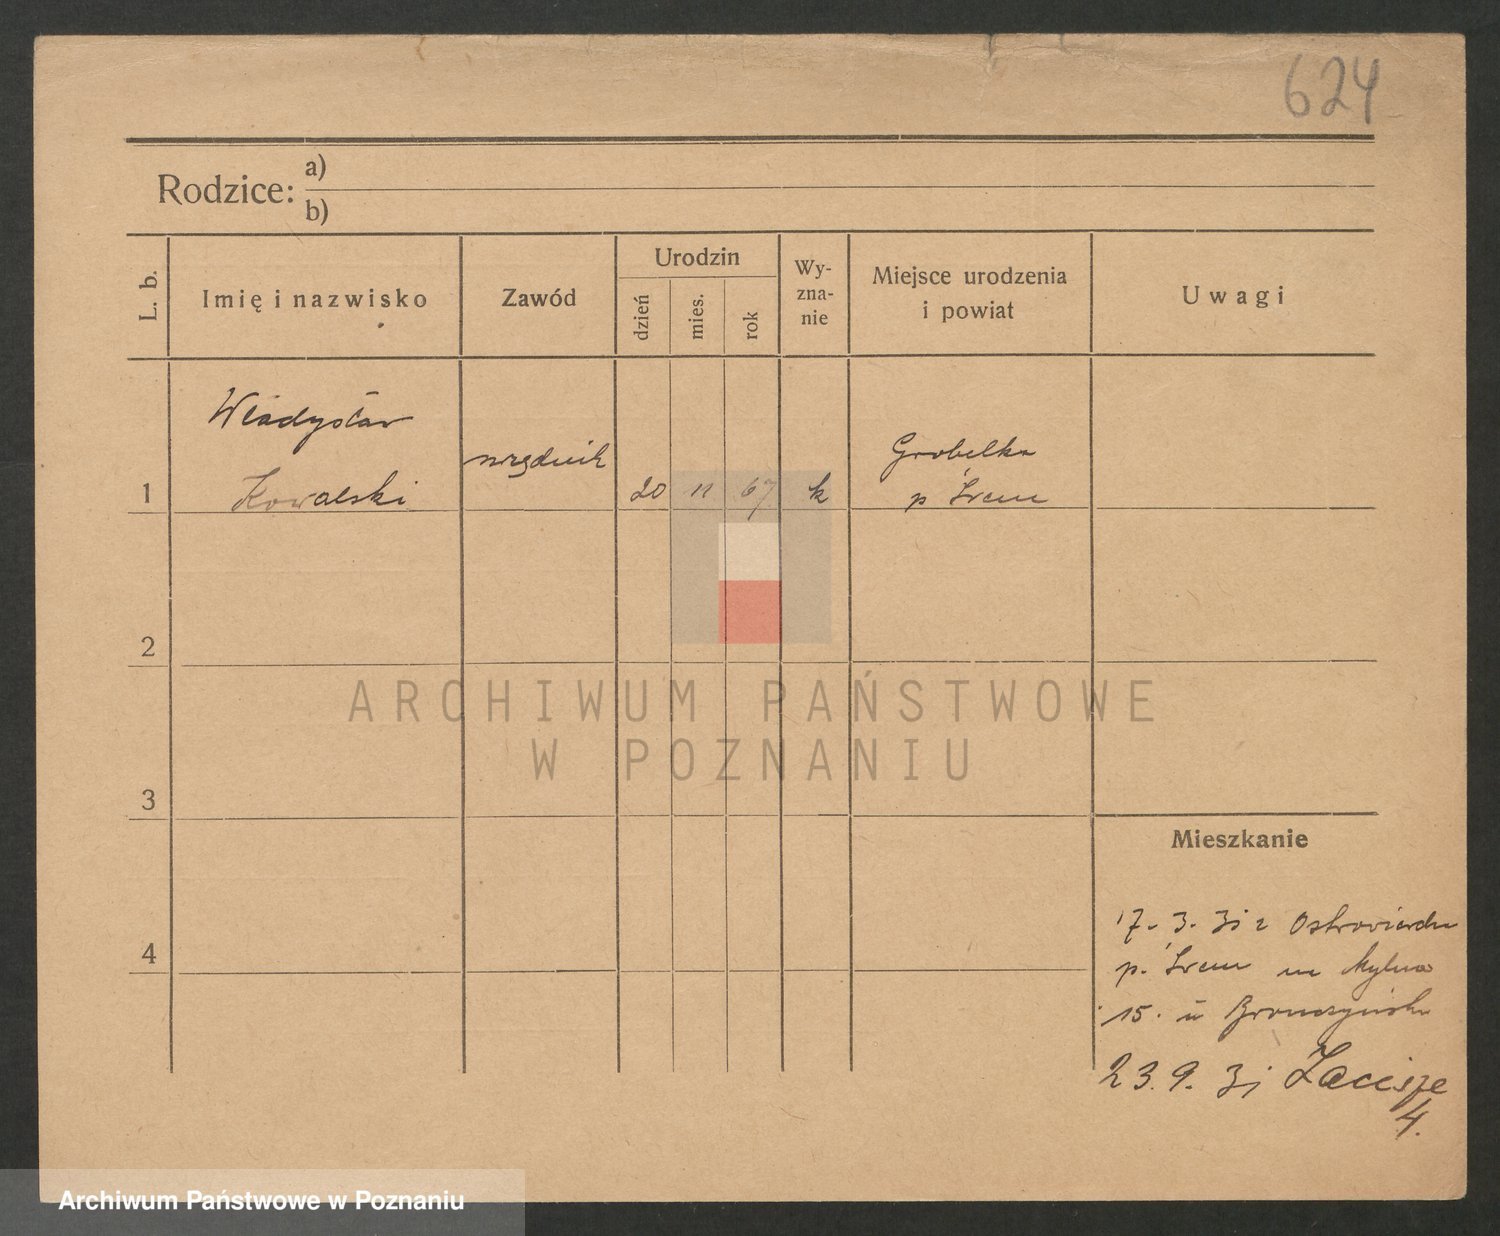 624
Rodzice: a)
b)
L. b.
Imię i nazwisko
Zawód
Urodzin
dzień
mies.
rok
Wy-
zna-
nie
Miejsce urodzenia
i powiat
Uwagi
Władysław
Kowalski
urzędnik
20 11 67 k
Grobelka
p Śrem
1
2
3
4
Mieszkanie
17. 3. 31 z
p. Śrem na Mylna
15. u
23. 9. 31 Zacisze
4.
ARCHIWUM PAŃSTWOWE
W POZNANIU
Archiwum Państwowe w Poznaniu